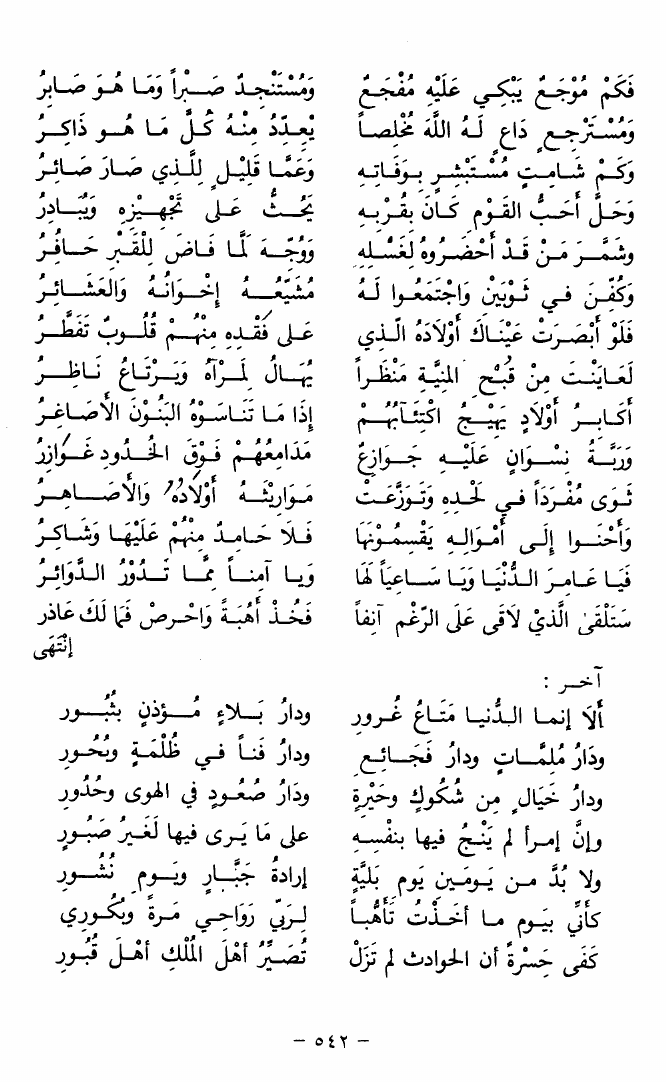 فَكَمْ مُوْجَعٍ يَبْكِي عَلَيْهِ مُفْجَعٌ وَمُسْتَنْجِدٌ صَبْراً وَمَا هُوَ صَابِرُ
وَمُسْتَرْجِعٍ دَاعٍ لَهُ اللهَ مُخْلِصاً يُعَدِّدُ مِنْهُ كُلَّ مَا هُوَ ذَاكِرُ
وَكَمْ شَامِتٍ مُسْتَبْشِرٍ بِوَفَاتِهِ وَعَمَّا قَلِيْلٍ لِلَّذِي صَارَ صَائِرُ
وَحَلَّ أَحَبُّ القَوْمِ كَانَ بِقُرْبِهِ يَحُثُّ عَلَى تَجْهِيْزِهِ وَيُبَادِرُ
وَشَمَّرَ مَنْ قَدْ أَحْضَرُوهُ لِغَسْلِهِ وَوُجِّهَ لَمَّا فَاضَ لِلْقَبْرِ حَافِرُ
وَكُفِّنَ فِي ثَوْبَيْنِ وَاجْتَمَعُوا لَهُ مُشَيِّعَةً إِخْوَانُهُ وَالعَشَائِرُ
فَلَوْ أَبْصَرَتْ عَيْنَاكَ أَوْلَادَهُ الَّذِي عَلَى فَقْدِهِ مِنْهُمْ قُلُوبٌ تَفَطَّرُ
لَعَايَنْتَ مِنْ قُبْحِ المَنِيَّةِ مَنْظَراً يُهَالُ لِمَرْآهُ وَيَرْتَاعُ نَاظِرُ
أَكَابِرُ أَوْلَادٍ يَهِيْجُ اكْتِئَابُهُمْ إِذَا مَا تَنَاسَوْهُ البَنُوْنَ الأَصَاغِرُ
وَرَبَّةُ نِسْوَانٍ عَلَيْهِ جَوَازِعٌ مَدَامِعُهُمْ فَوْقَ الخُدُودِ غَوَازِرُ
ثَوَى مُفْرَدَاً فِي لَحْدِهِ وَتَوَزَّعَتْ مَوَارِيْثَهُ أَوْلَادُهُ وَالأَصَاهِرُ
وَأَحْنَوا إِلَى أَمْوَالِهِ يَقْسِمُونَهَا فَلَا حَامِدٌ مِنْهُمْ عَلَيْهَا وَشَاكِرُ
فَيَا عَامِرَ الدُّنْيَا وَيَا سَاعِيَاً لَهَا وَيَا آمِناً مِمَّا تَدُوْرُ الدَّوَائِرُ
سَتَلْقَى الَّذِيْ لَاقَى عَلَى الرَّغْمِ آنِفاً فَخُذْ أُهْبَةً وَاحْرِصْ فَمَا لَكَ عَاذِرُ
إِنْتَهَى
آخر :
أَلَا إِنما الدُّنيا مَتَاعُ غُرورِ ودارُ بَلاءٍ مُؤذِنٍ بثُبُورِ
وَدَارُ مُلِمَّاتٍ ودارُ فَجَائِعٍ ودارُ فَناً في ظُلْمَةٍ وبُحُورِ
ودارُ خَيَالٍ مِن شُكُوكٍ وحَيْرةٍ ودَارُ صُعُودٍ في الهوى وحُدُورِ
وإنَّ إمرأً لم يَنْجُ فيها بنفْسِهِ على مَا يَرى فيها لغَيرُ صَبُورِ
ولا بُدَّ من يَومَينِ يَومِ بَليَّةٍ إرادةُ جَبَّارٍ ويَومِ نُشُورِ
كأنِّي بيَومٍ ما أخَذْتُ تَأَهُّباً لرَبِّي رَوَاحِي مَرةً وبُكُوري
كَفَى حَسْرةً أن الحوادث لم تَزَلْ تُصَيِّرُ أَهْلَ المُلْكِ أَهْلَ قُبُورِ
– ٥٤٢ –